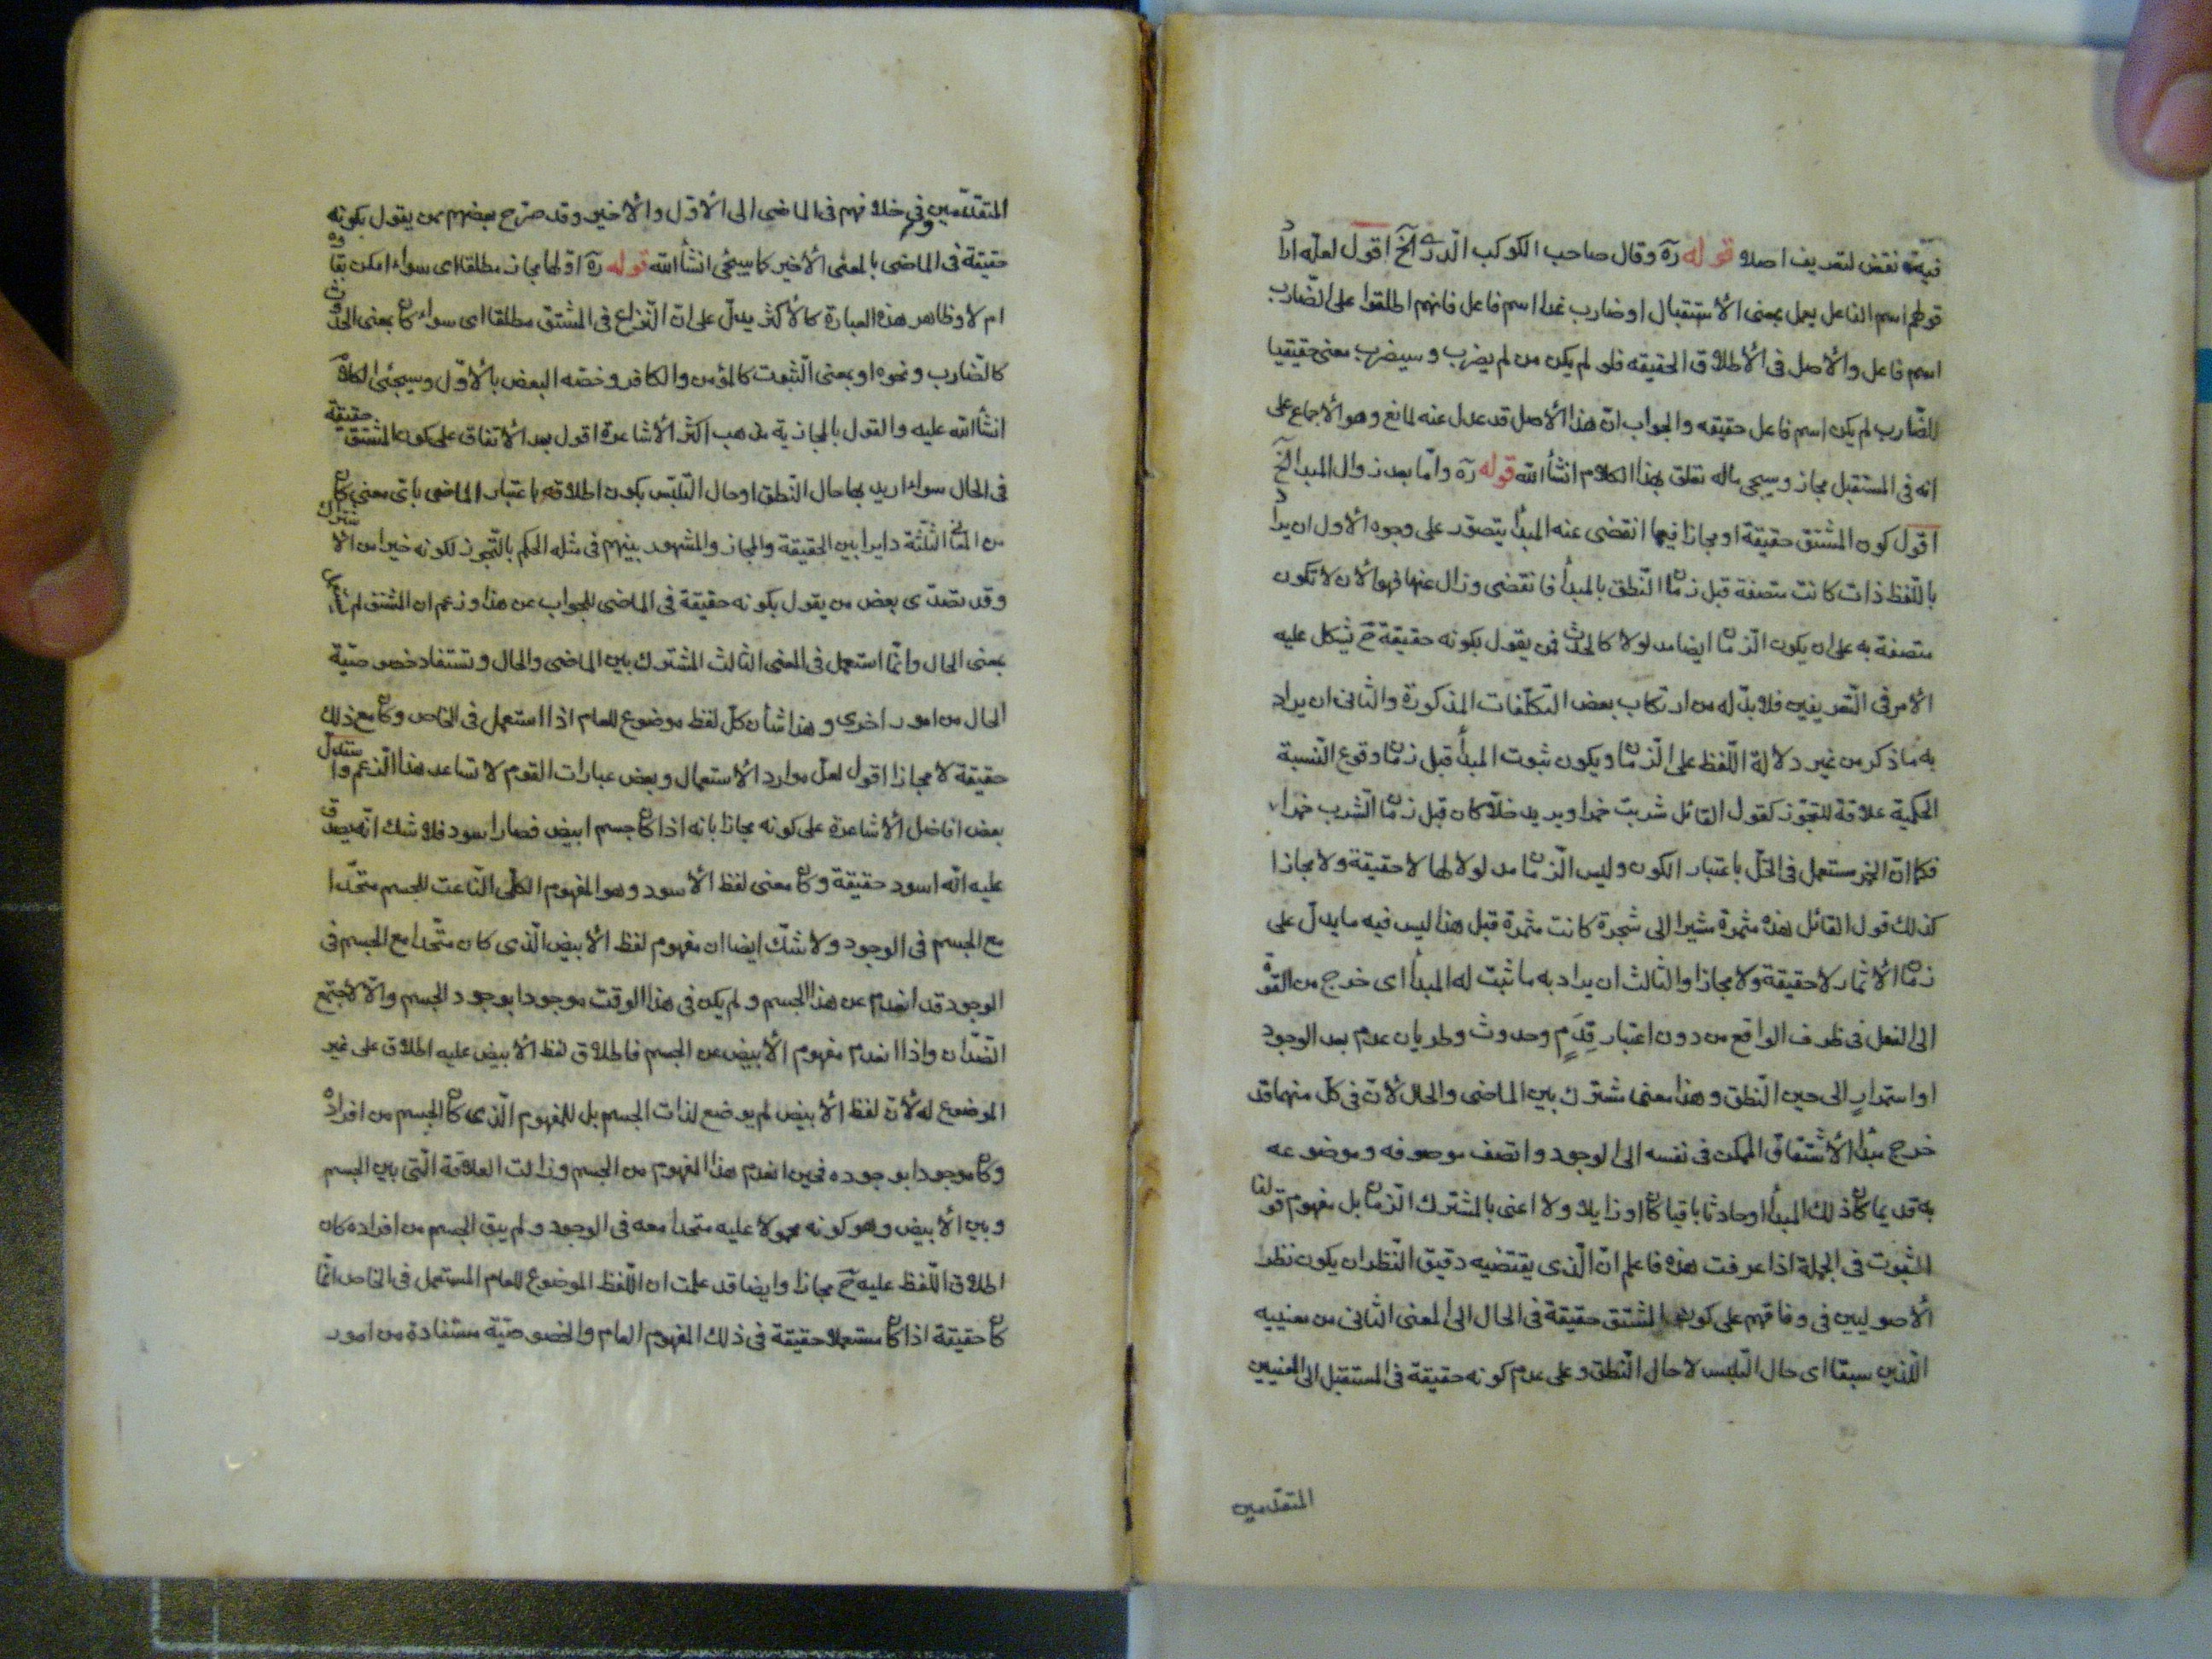 فيه نقض لتعريف اصلا قوله ره وقال صاحب الكوكب الدرى آلخ اقول لعله اراد
قولهم اسم الفاعل يعمل بمعنى الأستقبال او ضارب غدا اسم فاعل فانهم اطلقوا على الضارب
اسم فاعل والأصل فى الأطلاق الحقيقه فلو لم يكن من لم يضرب وسيضرب معنى حقيقيا
للضارب لم يكن اسم فاعل حقيقه والجواب ان هذا الأصل قد عدل عنه لمانع وهو الأجماع على
انه فى المستقبل مجاز وسيجى ماله تعلق بهذا الكلام انشأ الله قوله ره وامّا بعد زوال المبدا آلخ
اقول كون المشتق حقيقة او مجازا فيما انقضى عنه المبدأ يتصوّر على وجوه الأول ان يراد
باللّفظ ذات كانت متصفة قبل زمان النّطق بالمبدأ فانقضى وزال عنها فهو الأن لا تكون
متصفة به على ان يكون الزمان ايضا مدلولا كالحدث فمن يقول بكونه حقيقة ح يشكل عليه
الأمر فى التّعريفين فلا بدّ له من ارتكاب بعض التكلّفات المذكورة والثانى ان يراد
به ما ذكر من غير دلالة اللّفظ على الزمان ويكون ثبوت المبدأ قبل زمان وقوع النّسبة
الحكمية علاقة للتجوّز كقول القائل شربت خمرا ويريد خلّا كان قبل زمان الشرب خمرا
فكما انّ الخمر مستعمل فى الخلّ باعتبار الكون وليس الزمان مدلولا لها لا حقيقة ولا مجازا
كذلك قول القائل هذه مثمرة مشيرا الى شجرة كانت مثمرة قبل هذا ليس فيه ما يدلّ على
زمان الأثمار لا حقيقة ولا مجازا والثالث ان يراد به ما ثبت له المبدأ اى خرج من القوة
الى الفعل فى ظرف الواقع من دون اعتبار قِدَمٍ وحدوث وطريان عدم بعد الوجود
او استمرار الى حين النّطق وهذا معنى مشترك بين الماضى والحال لأنّ فى كلّ منهما قد
خرج مبدأ الأشتقاق الممكن فى نفسه الى الوجود واتصف موصوفه وموضوعه
به قديما كان ذلك المبدأ او حادثا باقيا كان او زايلا ولا اعنى بالمشترك الزمان بل مفهوم قولنا
الثبوت فى الجملة اذا عرفت هذه فاعلم انّ الّذى يقتضيه دقيق النّظر ان يكون نظر
الأصوليين فى وفاقهم على كون المشتق حقيقة فى الحال الى المعنى الثانى من معنييه
اللّذين سبقا اى حال التلبس لا حال النّطق وعلى عدم كونه حقيقة فى المستقبل الى المعنيين
المتقدّمين
المتقدّمين وفى خلافهم فى الماضى الى الأوّل والأخير وقد صرّح بعضهم ممن يقول بكونه
حقيقة فى الماضى بالمعنى الأخير كما سيجئ انشأ الله قوله ره اوّلها مجاز مطلقا اى سواء امكن بقاوه
ام لا وظاهر هذه العبارة كالأكثر يدلّ على انّ النّزاع فى المشتق مطلقا اى سواء كان بمعنى الحدوث
كالضّارب ونحوه او بمعنى الثبوت كالمؤمن والكافر وخصّه البعض بالأوّل وسيجئ الكلام
انشأ الله عليه والقول بالمجازية مذهب اكثر الأشاعرة اقول بعد الأتفاق على كون المشتق حقيقة
فى الحال سواء اريد بها حال النّطق او حال التّلبّس بكون اطلاقه باعتبار الماضى باىّ معنى كان
من المعانى الثلثة دايرا بين الحقيقة والمجاز والمشهور بينهم فى مثله الحكم بالتّجوز لكونه خيرا من الأشتراك
وقد تصدّى بعض من يقول بكونه حقيقة فى الماضى للجواب عن هذا وزعم ان المشتق لم يأت
بمعنى الحال وانّما استعمل فى المعنى الثالث المشترك بين الماضى والحال وتستفاد خصوصيّة
الحال من امور اخرى وهذا شأن كلّ لفظ موضوع للعام اذا استعمل فى الخاص وكان مع ذلك
حقيقة لا مجازا اقول لعلّ موارد الأستعمال وبعض عبارات القوم لا تساعد هذا الزّعم واستدلّ
بعض افاضل الأشاعرة على كونه مجازا بانه اذا كان جسم ابيض فصار اسود فلا شك انّه يصدق
عليه انّه اسود حقيقة وكان معنى لفظ الأسود وهو المفهوم الكلّى النّاعت للجسم متحّدا
مع الجسم فى الوجود ولا شكّ ايضا ان مفهوم لفظ الأبيض الّذى كان متّحدا مع الجسم فى
الوجود قد انعدم عن هذا الجسم ولم يكن فى هذا الوقت موجودا بوجود الجسم والّا لاجتمع
الضّدّان واذا انعدم مفهوم الأبيض عن الجسم فاطلاق لفظ الأبيض عليه اطلاق على غير
الموضوع له لأنّ لفظ الأبيض لم يوضع لذات الجسم بل للمفهوم الّذى كان الجسم من افراده
وكان موجودا بوجوده فحين انعدم هذا المفهوم من الجسم وزالت العلاقة الّتى بين الجسم
وبين الأبيض وهو كونه محمولا عليه متحدا معه فى الوجود ولم يبق الجسم من افراده كان
اطلاق اللّفظ عليه ح مجازا وايضا قد علمت ان اللّفظ الموضوع للعام المستعمل فى الخاص انّما
كان حقيقة اذا كان مستعملا حقيقة فى ذلك المفهوم العام والخصوصيّة مستفادة من امور